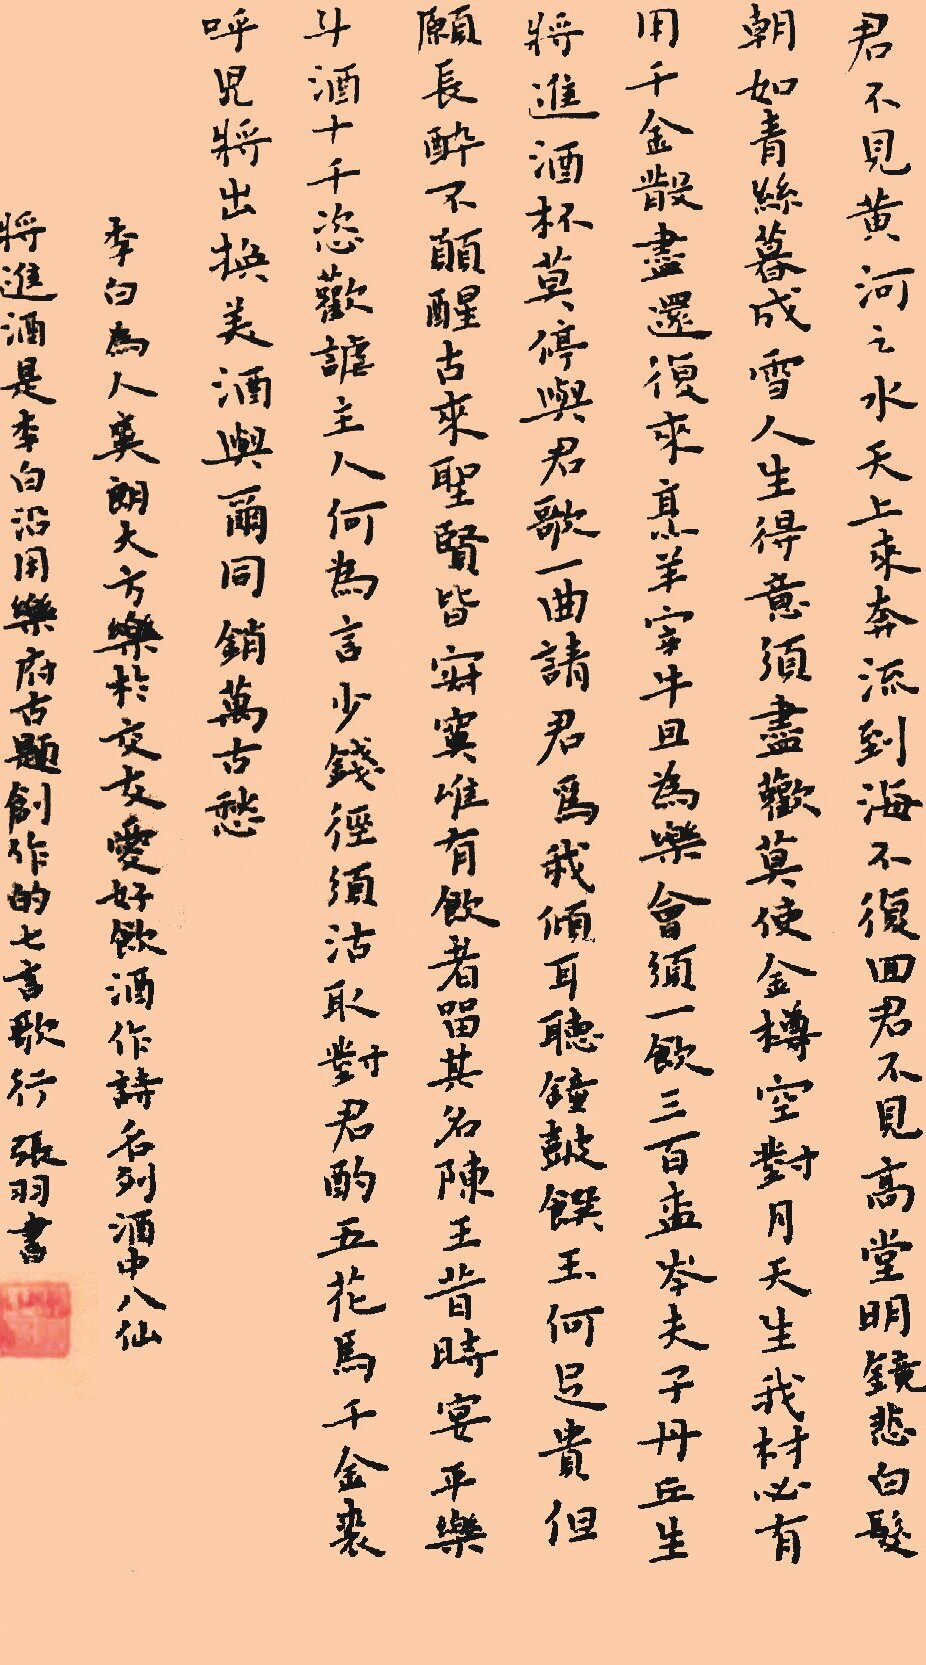 君不見黃河之水天上來奔流到海不復回君不見高堂明鏡悲白髮
朝如青絲暮成雪人生得意須盡歡莫使金樽空對月天生我材必有
用千金散盡還復來烹羊宰牛且為樂會須一飲三百盃岑夫子丹丘生
將進酒杯莫停與君歌一曲請君為我傾耳聽鐘鼓饌玉何足貴但
願長醉不願醒古來聖賢皆寂寞唯有飲者留其名陳王昔時宴平樂
斗酒十千恣歡謔主人何為言少錢徑須沽取對君酌五花馬千金裘
呼兒將出換美酒與爾同銷萬古愁
李白為人爽朗大方樂於交友愛好飲酒作詩名列酒中八仙
將進酒是李白沿用樂府古題創作的七言歌行 張羽書